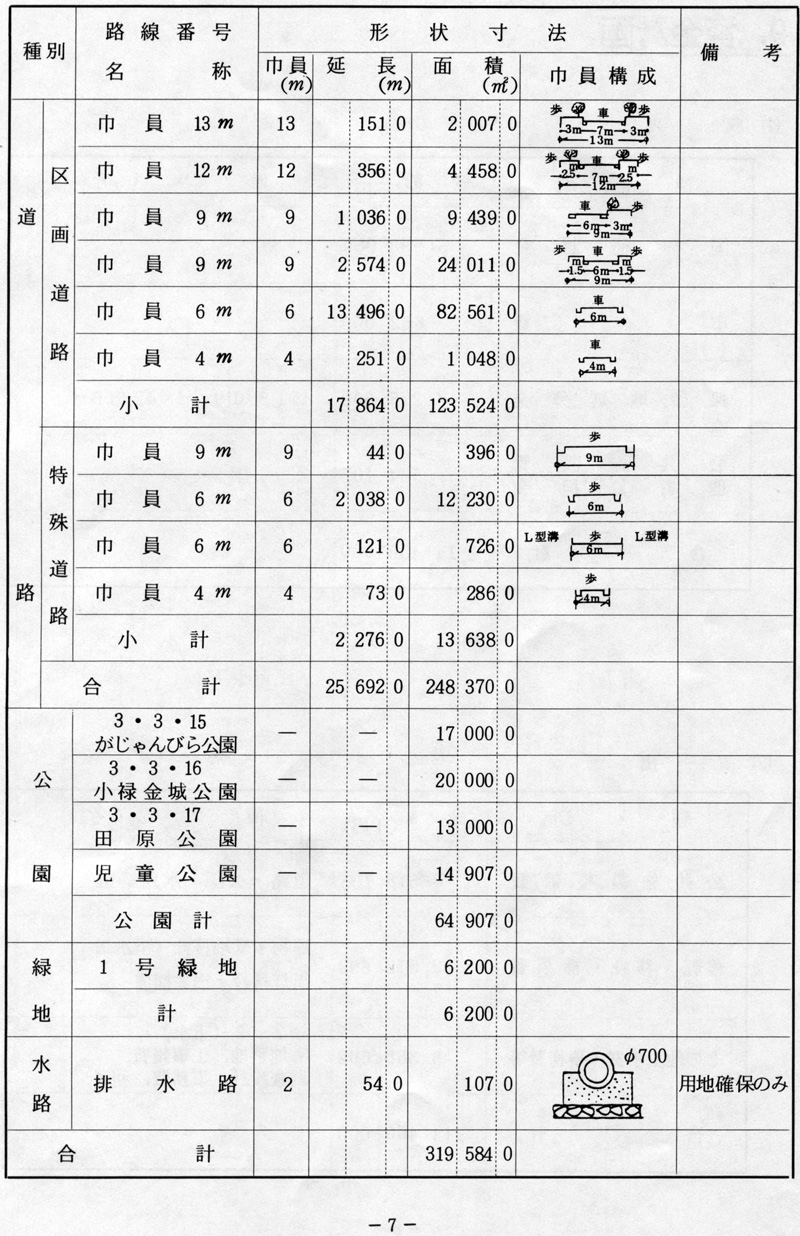 種別 路線番号 名称 形状寸法 備考
巾員(m) 延長(m) 面積(㎡) 巾員構成
道路
区画道路
巾員 13m 13 151 0 2 007 0 歩 車 歩 3m 7m 3m 13m
巾員 12m 12 356 0 4 458 0 歩 車 歩 m m 2.5 7m 2.5 12m
巾員 9m 9 1 036 0 9 439 0 車 歩 6m 3m 9m
巾員 9m 9 2 574 0 24 011 0 歩 車 歩 m m 1.5 6m 1.5 9m
巾員 6m 6 13 496 0 82 561 0 車 6m
巾員 4m 4 251 0 1 048 0 車 4m
小計 17 864 0 123 524 0
特殊道路
巾員 9m 9 44 0 396 0 歩 9m
巾員 6m 6 2 038 0 12 230 0 歩 6m
巾員 6m 6 121 0 726 0 L型溝 歩 L型溝 6m
巾員 4m 4 73 0 286 0 歩 4m
小計 2 276 0 13 638 0
合計 25 692 0 248 370 0
公園
3・3・15
がじゃんびら公園 — — 17 000 0
3・3・16
小禄金城公園 — — 20 000 0
3・3・17
田原公園 — — 13 000 0
児童公園 — — 14 907 0
公園計 64 907 0
緑地
1号緑地 6 200 0
計 6 200 0
水路
排水路 2 54 0 107 0 φ700 用地確保のみ
合計 319 584 0
－7－